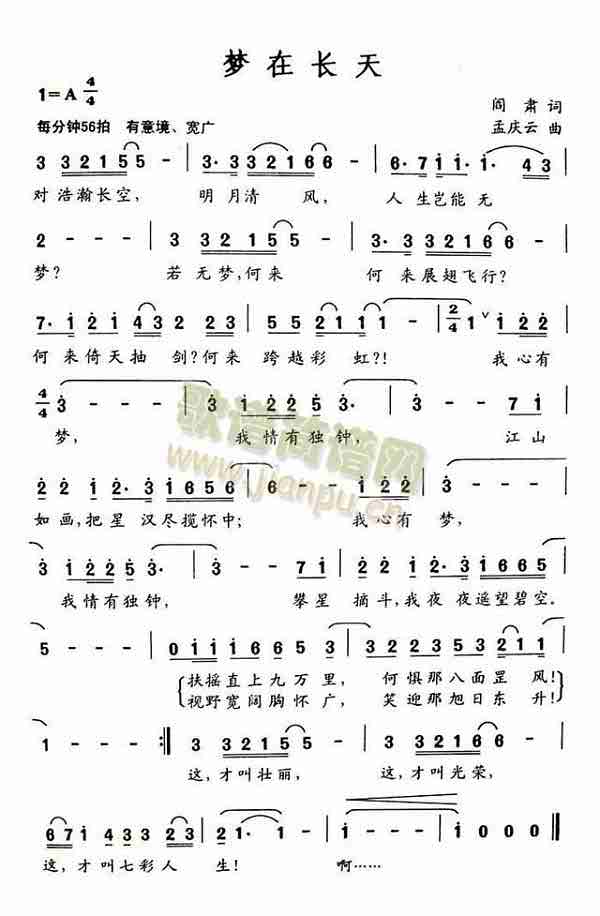 梦在长天
1=A 4/4
阎肃 词
每分钟56拍 有意境、宽广
孟庆云 曲
3 3 2 1 5 5 | 3· 3 3 2 1 6 6 | 6· 7 1 1· 1· 4 3 |
对浩瀚长空, 明月清风, 人生岂能无
2 - - - | 3 3 2 1 5 5 | 3· 3 3 2 1 6 6 |
梦? 若无梦,何来 何来展翅飞行?
7· 1 2 1 4 3 2 2 3 | 5 5 2 1 1 1 - | 2/4 1 ∨ 1 2 2 |
何来倚天抽剑?何来跨越彩虹?! 我心有
4/4 3 - - - | 3 1 2 2 5 3· | 3 - - 7 1 |
梦, 我情有独钟, 江山
2 2 1 2· 3 1 6 5 6 | 6 - - 1 2 2 | 3 - - - |
如画,把星汉尽揽怀中; 我心有梦,
3 1 2 2 5 3· | 3 - - 7 1 | 2 2 1 2· 3 1 6 6 5 |
我情有独钟, 攀星摘斗,我夜夜遥望碧空。
5 - - - | 0 1 1 1 6 6 5 3 | 3 2 2 3 5 3 2 1 1 |
扶摇直上九万里, 何惧那八面罡风!
视野宽阔胸怀广, 笑迎那旭日东升!
1 - - - :| 3 3 2 1 5 5 | 3 3 2 1 6 6 - |
这,才叫壮丽, 这,才叫光荣,
6 7 1 4 3 3 2 3 | 2 1· 1 - | 1 - - - | 1 0 0 0 ||
这,才叫七彩人生! 啊……
歌谱简谱网
www.jianpu.cn